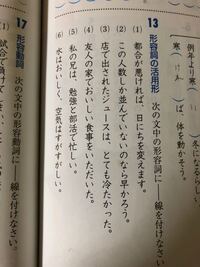 例年より寒
寒 けれ ば、体を動かそう。
13 形容詞の活用形 次の文中の形容詞に――線を付けなさい。
(1) 都合が悪ければ、日にちを変えます。
(2) この人数しか並んでいないのなら早かろう。
(3) 店で出されたジュースは、とても冷たかった。
(4) 友人の家でおいしい食事をいただいた。
(5) 私の兄は、勉強と部活で忙しい。
(6) 水はおいしく、空気はすがすがしい。
17 形容動詞 次の文の中の形容動詞に――線を付けなさい。